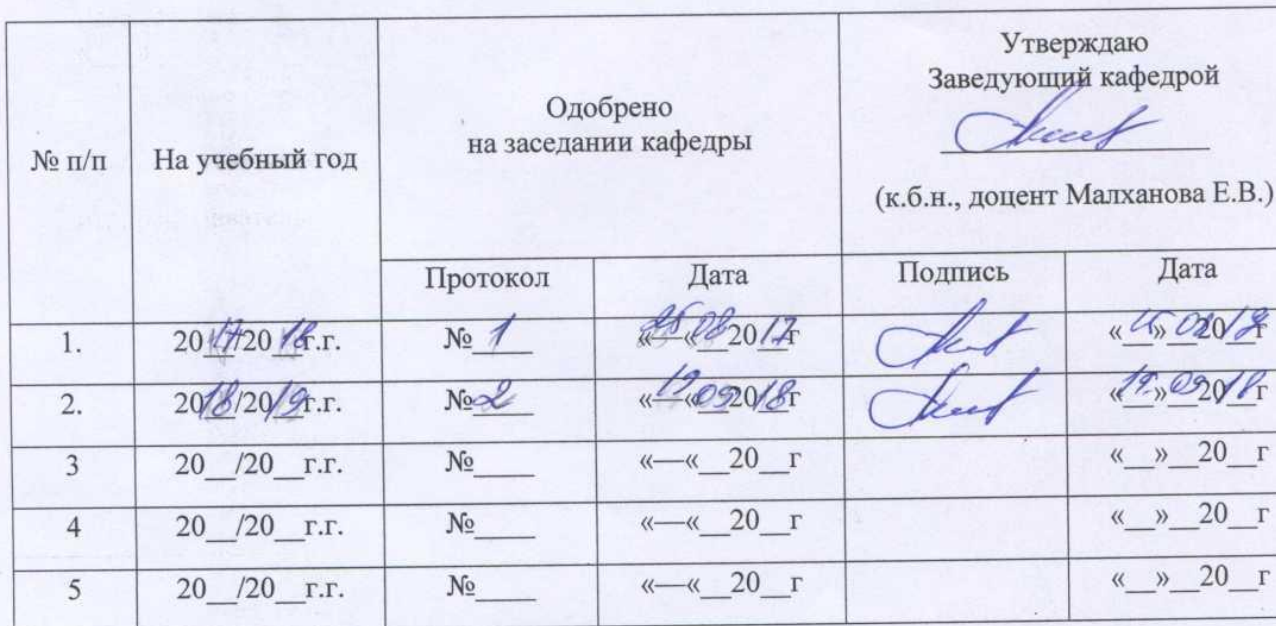 № п/п
На учебный год
Одобрено
на заседании кафедры
Утверждаю
Заведующий кафедрой
(к.б.н., доцент Малханова Е.В.)
Протокол Дата Подпись Дата
1. 2017/2018г.г. №1 « « 08 2017г « » 20 г
2. 2018/2019г.г. №2 «—«19 09 2018г «19» 09 2018г
3 20__/20__г.г. №____ «—«__20__г «__»__20__г
4 20__/20__г.г. №____ «—«__20__г «__»__20__г
5 20__/20__г.г. №____ «—«__20__г «__»__20__г